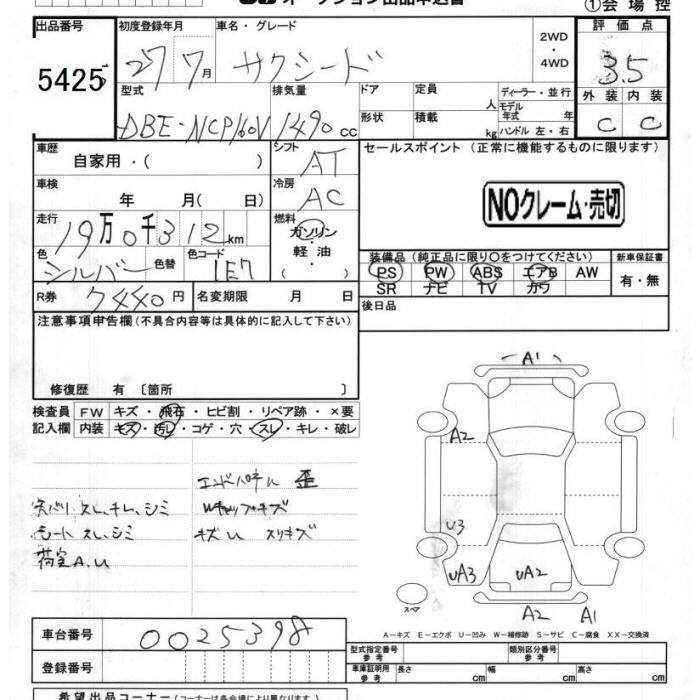 オークション出品申込書 ①会場控
出品番号 5425
初度登録年月 27 7月
車名・グレード サクシード
2WD・4WD
評価点 3.5
外装 C 内装 C
型式 DBE-NCP160V
排気量 1490 cc
ドア
定員 人
形状
積載 kg
ディーラー・並行
モデル年式 年
ハンドル 左・右
車歴 自家用・( )
シフト AT
車検 年 月( 日)
冷房 AC
走行 19万0千312km
燃料 ガソリン・軽油・( )
色 シルバー 色替
色コード 1E7
R券 7440円
名変期限 月 日
セールスポイント (正常に機能するものに限ります)
NOクレーム・売切
装備品 (純正品に限り○をつけてください)
PS PW ABS エアB AW
SR ナビ TV カワ
新車保証書 有・無
後日品
注意事項申告欄 (不具合内容等は具体的に記入して下さい)
修復歴 有 〔箇所 〕
検査員 FW キズ・飛石・ヒビ割・リペア跡・×要
記入欄 内装 キズ・汚し・コゲ・穴・スレ・キレ・破レ
エンドパネル 歪
スレ、キレ、シミ
シート スレ、シミ
キズU スリキズ
荷室A、U
A1
A2
U3
UA3
UA2
A2
A1
スペア
A－キズ E－エクボ U－凹み W－補修跡 S－サビ C－腐食 XX－交換済
車台番号 0025398
登録番号
型式指定番号 参考
類別区分番号 参考
車庫証明用 参考 長さ cm 幅 cm 高さ cm
希望出品コーナー (コーナーは各会場で異なります)